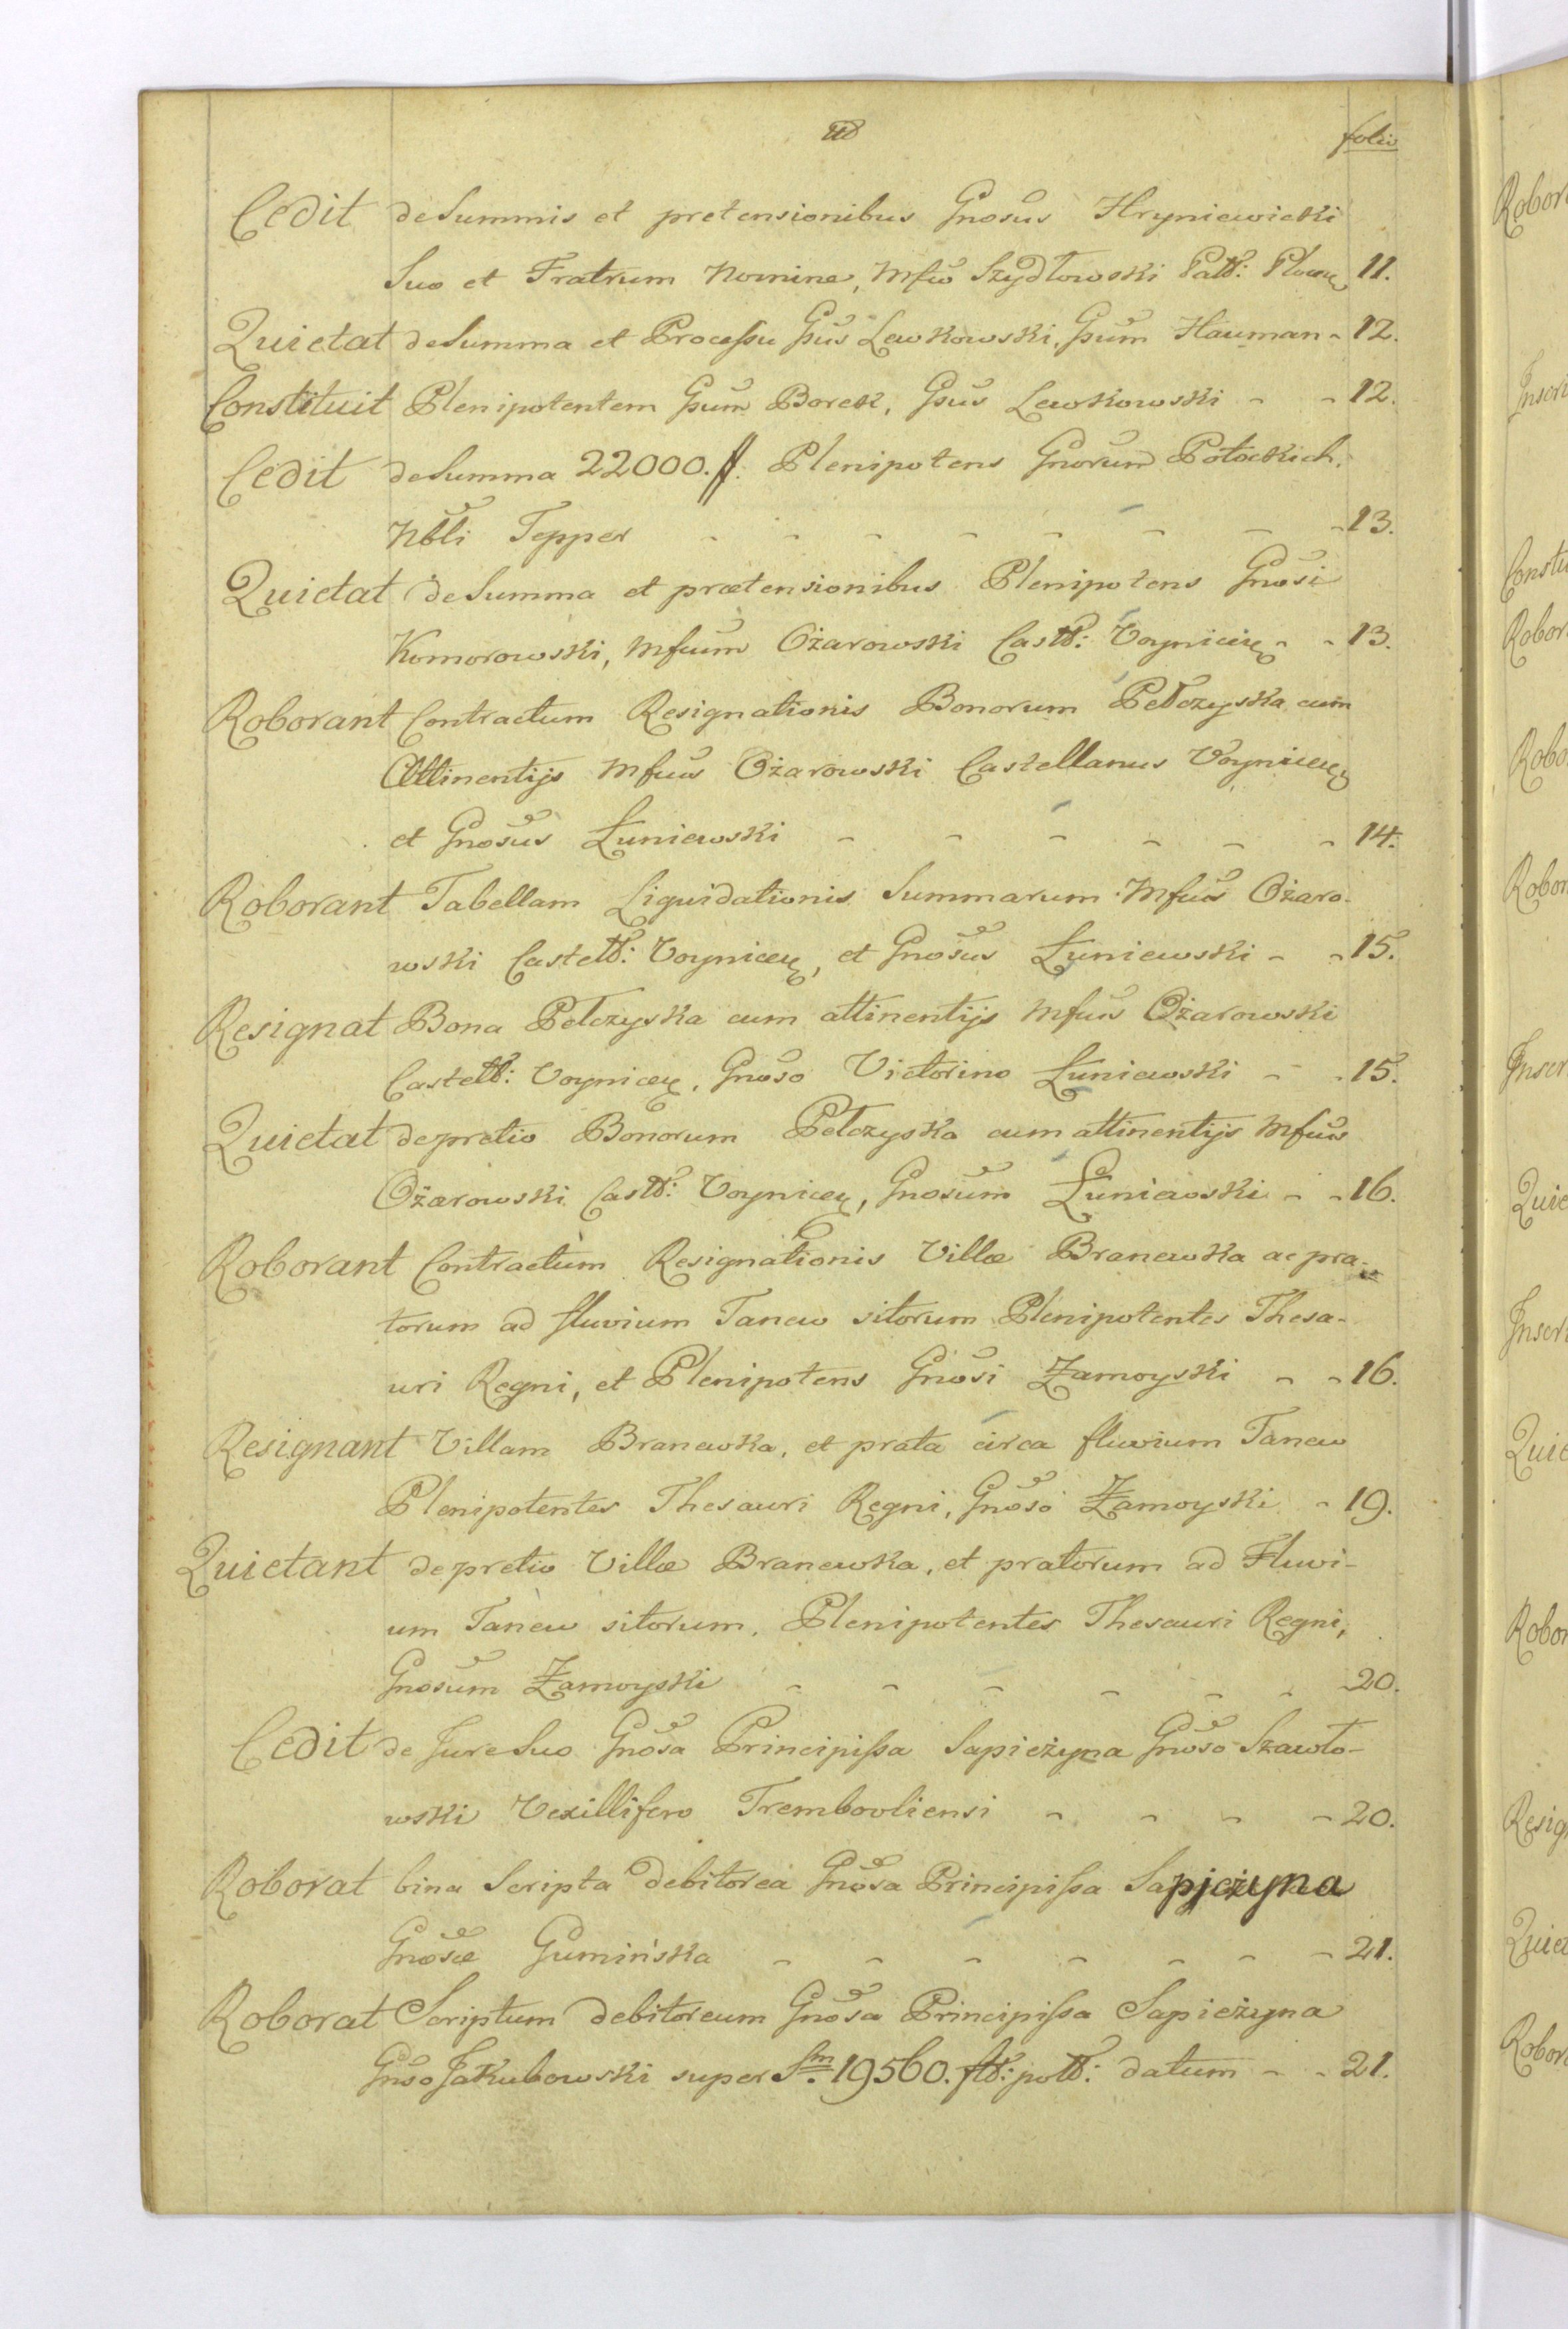 folio
Cedit de Summis et pretensionibus Gnosus Hryniewicki
Suo et Fratrum Nomine, Mfco Szydłowski Patt: Plocen 11.
Quietat de Summa et Processu Gsus Lewkowski, Gsum Hauman - 12.
Constituit Plenipotentem Gsum Borek, Gsus Lewkowski - - 12.
Cedit de Summa 22000. ff. Plenipotens Gnorum Potockich,
Nbli Tepper - - - - - - - - 13.
Quietat de Summa et prætensionibus Plenipotens Gnosi
Komorowski, Mfcum Ożarowski Castt: Voynicien - - 13.
Roborant Contractum Resignationis Bonorum Pełczyska cum
Attinentijs Mfcus Ożarowski Castellanus Voynicen
et Gnosus Łuniewski - - - - - - 14.
Roborant Tabellam Liquidationis Summarum Mfcus Ożaro-
wski Castett: Voynicen, et Gnosus Łuniewski - - 15.
Resignat Bona Pełczyska cum attinentijs Mfcus Ożarowski
Castett: Voynicen, Gnoso Victorino Łuniewski - - 15.
Quietat de pretio Bonorum Pełczyska cum attinentijs Mfcus
Ożarowski Castt: Voynicen, Gnosum Łuniewski - - 16.
Roborant Contractum Resignationis Villæ Branewka ac pra-
torum ad fluvium Tanew sitorum Plenipotentes Thesa-
uri Regni, et Plenipotens Gnosi Zamoyski - - 16.
Resignant Villam Branewka, et prata circa fluvium Tanew
Plenipotentes Thesauri Regni, Gnoso Zamoyski - 19.
Quietant de pretio Villæ Branewka, et pratorum ad Fluvi-
um Tanew sitorum, Plenipotentes Thesauri Regni,
Gnosum Zamoyski - - - - - - 20.
Cedit de Jure Suo Gnosa Principissa Sapieżyna Gnoso Szawło-
wski Vexillifero Trembovliensi - - - - 20.
Roborat bina Scripta debitorea Gnosa Principissa Sapjeżyna
Gnosæ Gumińska - - - - - - - 21.
Roborat Scriptum debitoreum Gnosa Principissa Sapieżyna
Gnoso Jakubowski super Sm. 19560. ftt: pott: datum - - 21.